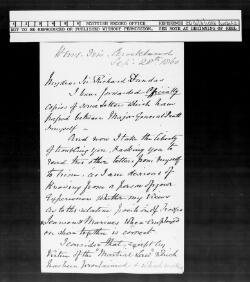 SCOTTISH RECORD OFFICE
REFERENCE
NOT TO BE REPRODUCED OR PUBLISHED WITHOUT PERMISSION.
SEE NOTE AT BEGINNING OF REEL
Sep. 28th 1860
My dear Sir Richard Dundas
I have forwarded Officially
copies of some letters which have
passed between Major General
& myself —
And now I take the liberty
of troubling you, & asking you to
read this other letter from myself
to him, as I am desirous of
knowing from a person of your
Experience whether my views
as to the relative position of Troops
Seamen & Marines when employed
on shore together is correct.
I consider that except by
Virtue of the "Martial Law" which
has been proclaimed &